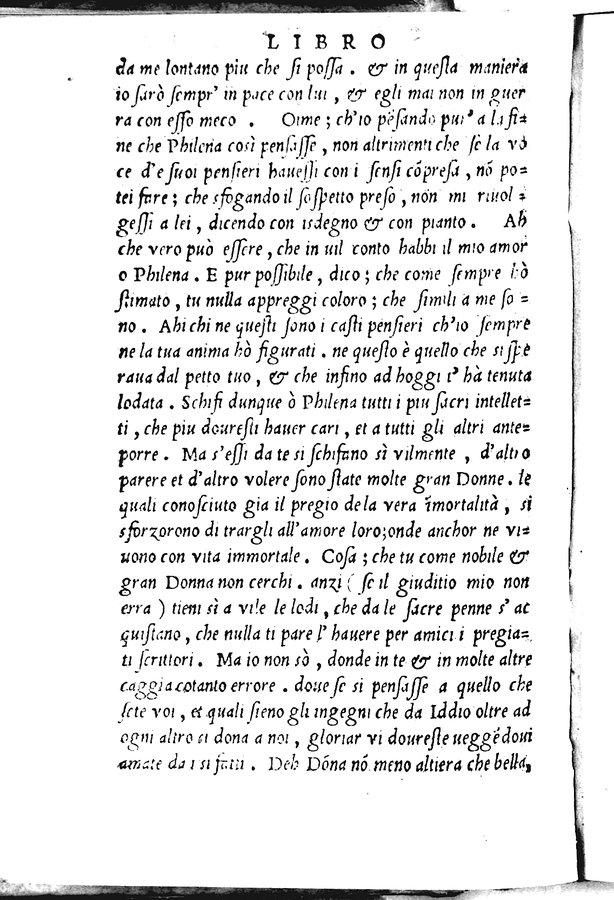 LIBRO
da me lontano piu che ſi poſſa . & in queſta maniera
io ſarò ſempr' in pace con lui , & egli mai non in guer
ra con eſſo meco . Oime ; ch'io pẽſando pur' a la fi=
ne che Philena così penſaſſe , non altrimenti che ſe la vo
ce d'e ſuoi penſieri haueſſi con i ſenſi cõpreſa , nõ po=
tei fare ; che sfogando il ſoſpetto preſo , non mi riuol =
geſſi a lei , dicendo con isdegno & con pianto . Ah
che vero può eſſere , che in uil conto habbi il mio amor
o Philena . E pur poſſibile , dico ; che come ſempre hò
ſtimato , tu nulla appreggi coloro ; che ſimili a me ſo =
no . Ahi chi ne queſti ſono i caſti penſieri ch'io ſempre
ne la tua anima hò figurati . ne queſto è quello che si ſpe
raua dal petto tuo , & che inſino ad hoggi t' hà tenuta
lodata . Schifi dunque ò Philena tutti i piu ſacri intellet=
ti , che piu doureſti hauer cari , et a tutti gli altri ante=
porre . Ma s'eſſi da te si ſchifano sì vilmente , d'altro
parere et d'altro volere ſono ſtate molte gran Donne . le
quali conoſciuto gia il pregio de la vera ĩmortalità , si
sforzorono di trargli all'amore loro;onde anchor ne vi=
uono con vita immortale . Coſa ; che tu come nobile &
gran Donna non cerchi . anzi ( ſe il giuditio mio non
erra ) tieni sì a vile le lodi , che da le ſacre penne s' ac
quiſtano , che nulla ti pare l' hauere per amici i pregia=
ti ſcrittori . Ma io non sò , donde in te & in molte altre
caggia cotanto errore . doue ſe si penſaſſe a quello che
ſete voi , et quali ſieno gli ingegni che da Iddio oltre ad
ogni altro si dona a noi , gloriar vi doureſte ueggẽdoui
amate da i si fatti . Deh Dõna nõ meno altiera che bella,